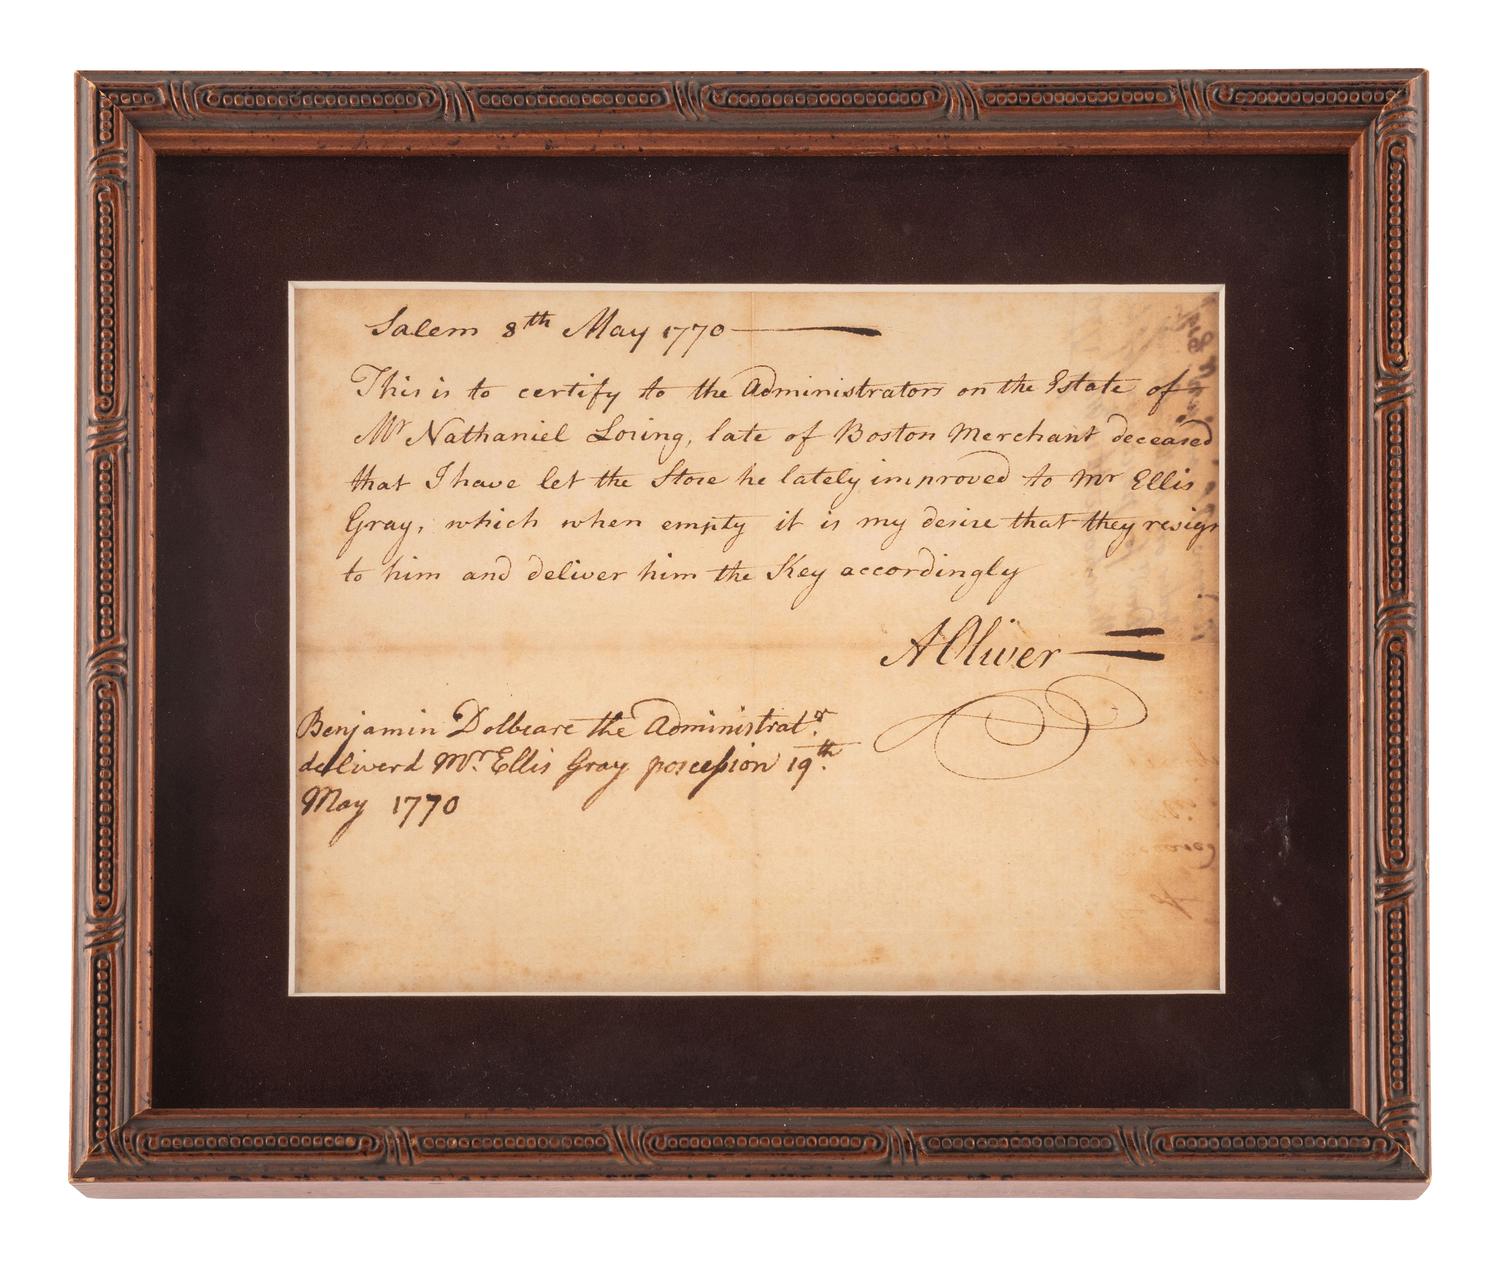 Salem 8th May 1770
This is to certify to the Administrators on the Estate of
Mr Nathaniel Loring, late of Boston Merchant deceased
that I have let the Store he lately improved to Mr Ellis
Gray, which when empty it is my desire that they resign
to him and deliver him the Key accordingly
A Oliver
Benjamin Dolbeare the Administratr.
deliverd Mr. Ellis Gray poscession 19th.
May 1770